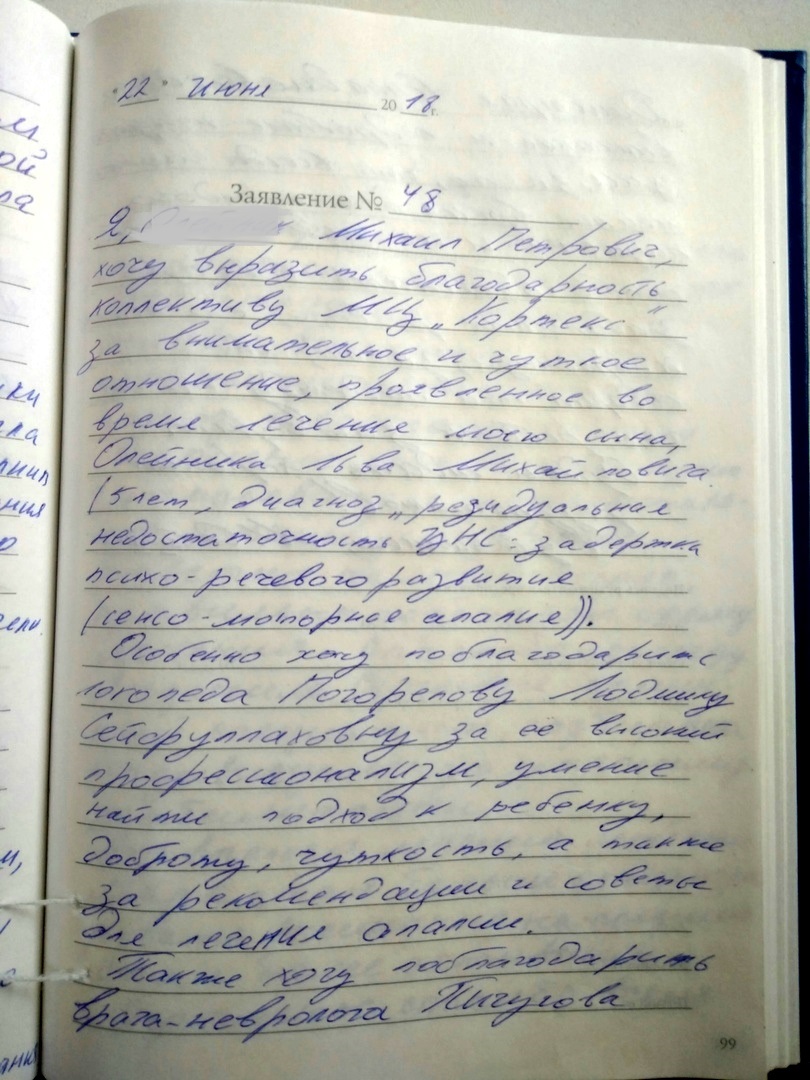 "22" Июня 2018г.
Заявление № 48
Я, Михаил Петрович,
хочу выразить благодарность
коллективу МЦ „Кортекс"
за внимательное и чуткое
отношение, проявленное во
время лечения моего сына,
Олейника Льва Михайловича.
(5 лет, диагноз „резидуальная
недостаточность ЦНС: задержка
психо-речевого развития
(сенсо-моторная алалия)).
Особенно хочу поблагодарить
логопеда Погорелову Людмилу
Сейфуллаховну за её высокий
профессионализм, умение
найти подход к ребенку,
доброту, чуткость, а также
за рекомендации и советы
для лечения алалии.
Также хочу поблагодарить
врача-невролога Пичугова
99